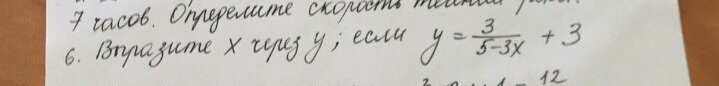 7 часов. Определите скорость течения реки.
6. Выразите x через y; если y = 3/(5-3x) + 3
12